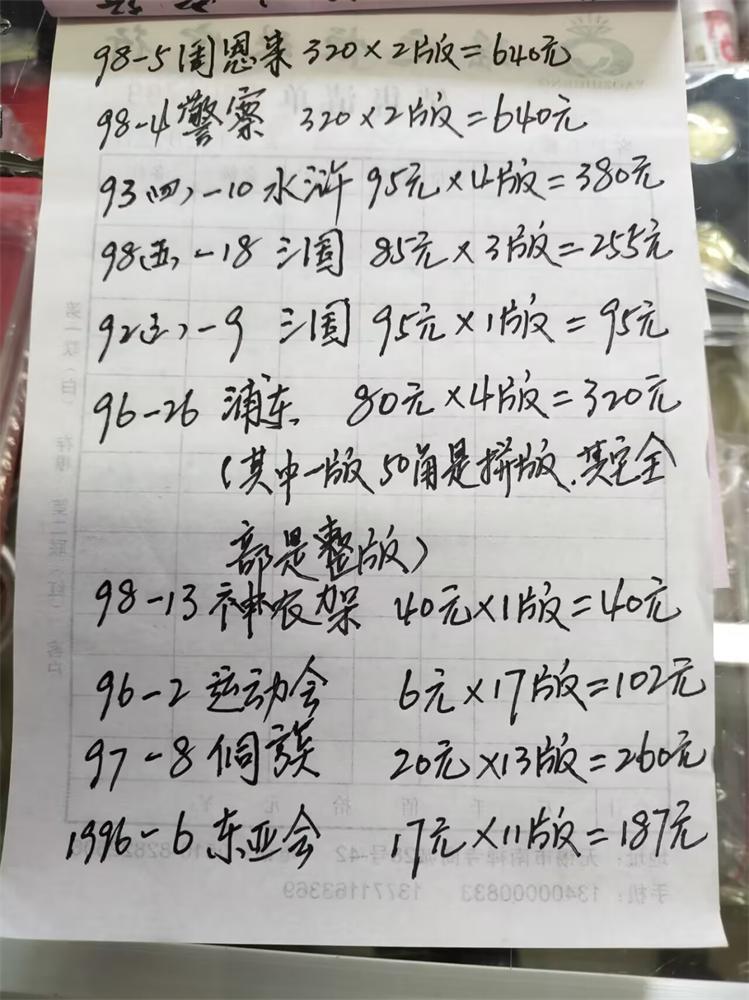 98-5周恩来 320×2版=640元
98-4警察 320×2版=640元
93(四)-10 水浒 95元×4版=380元
98(五)-18 三国 85元×3版=255元
92(五)-9 三国 95元×1版=95元
96-26 浦东 80元×4版=320元
(其中一版50角是拼版.其它全
部是整版)
98-13神农架 40元×1版=40元
96-2 运动会 6元×17版=102元
97-8侗族 20元×13版=260元
1996-6东亚会 17元×11版=187元